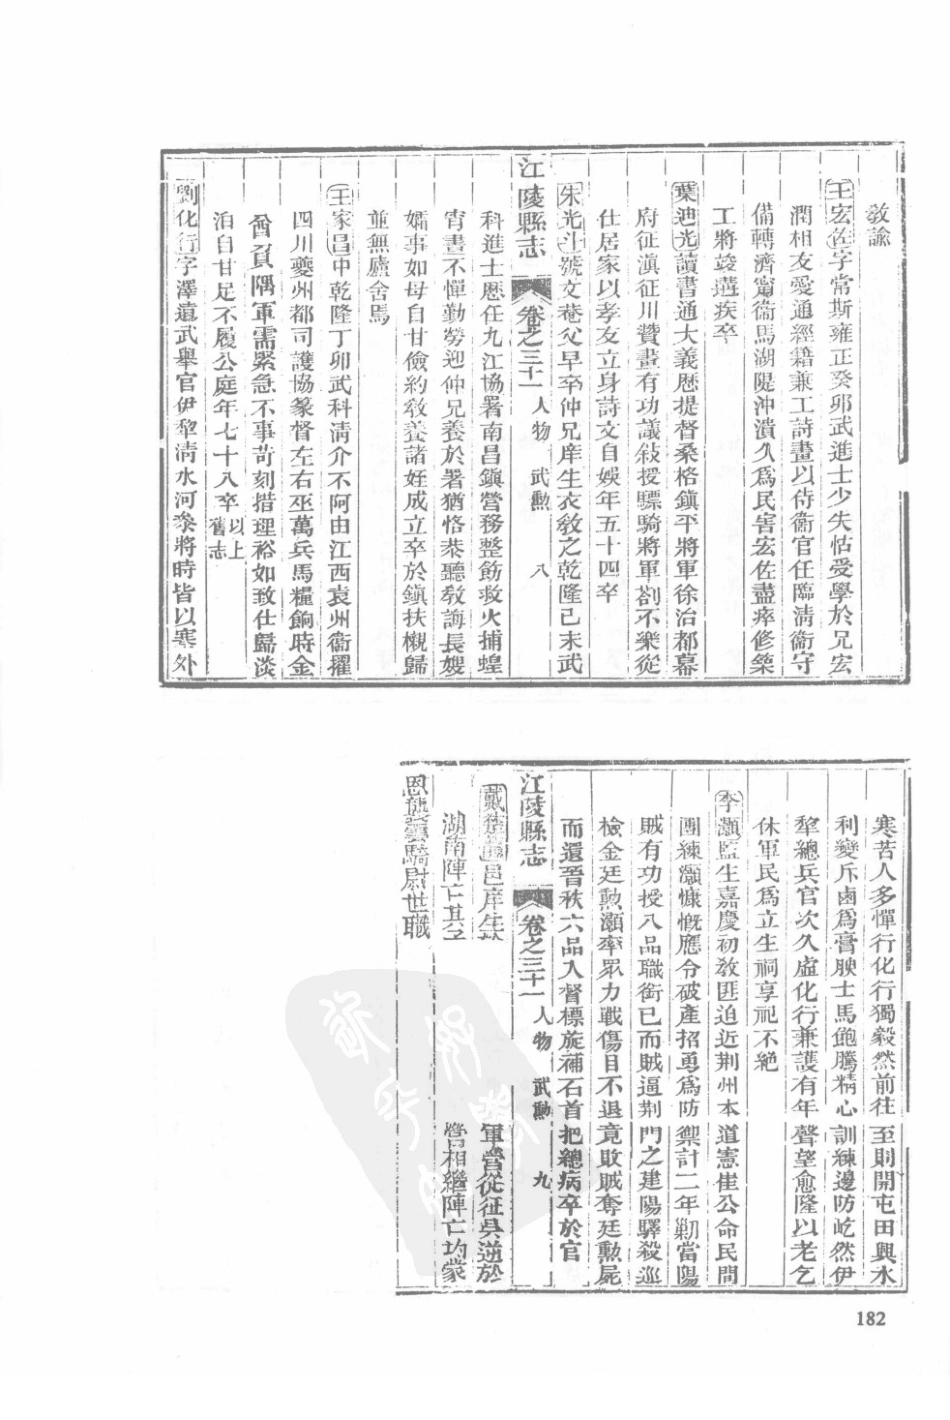 教諭
王宏佐字常斯雍正癸卯武進士少失怙受學於兄宏
潤相友愛通經籍兼工詩畫以侍衞官任臨清衞守
備轉濟甯衞馬湖隄沖潰久爲民害宏佐盡瘁修築
工將竣遘疾卒
葉迪光讀書通大義歷堤督桑格鎮平將軍徐治都幕
府征滇征川贊畫有功議敍授驃騎將軍劄不樂從
仕居家以孝友立身詩文自娛年五十四卒
朱光斗號文菴父早卒仲兄庠生衣敎之乾隆己未武
江陵縣志 卷之三十一 人物 武勲 八
科進士歷任九江協署南昌鎮營務整飭救火捕蝗
宵晝不憚勤勞迎仲兄養於署猶恪恭聽敎誨長嫂
孀事如母自甘儉約敎養諸姪成立卒於鎮扶櫬歸
並無廬舍焉
王家昌中乾隆丁卯武科清介不阿由江西袁州衞擢
四川夔州都司護協篆督左右巫萬兵馬糧餉時金
酋負隅軍需緊急不事苛刻措理裕如致仕歸淡
泊自甘足不履公庭年七十八卒 以上舊志
劉化行字澤遠武舉官伊犂清水河叅將時皆以塞外
寒苦人多憚行化行獨毅然前往至則開屯田興水
利變斥鹵爲膏腴士馬飽騰精心訓練邊防屹然伊
犂總兵官次久虛化行兼護有年聲望愈隆以老乞
休軍民爲立生祠享祀不絶
李灝監生嘉慶初敎匪迫近荆州本道憲崔公命民間
團練灝慷慨應令破產招勇爲防禦計二年勦當陽
賊有功授八品職銜已而賊逼荆門之建陽驛殺巡
檢金廷勲灝率眾力戰傷目不退竟敗賊奪廷勲屍
而還晉秩六品入督標旋補石首把總病卒於官
江陵縣志 卷之三十一 人物 武勲 九
戴 邑庠生 軍營從征吳逆於
湖南陣亡其子 營相繼陣亡均蒙
恩 雲騎尉世職
182